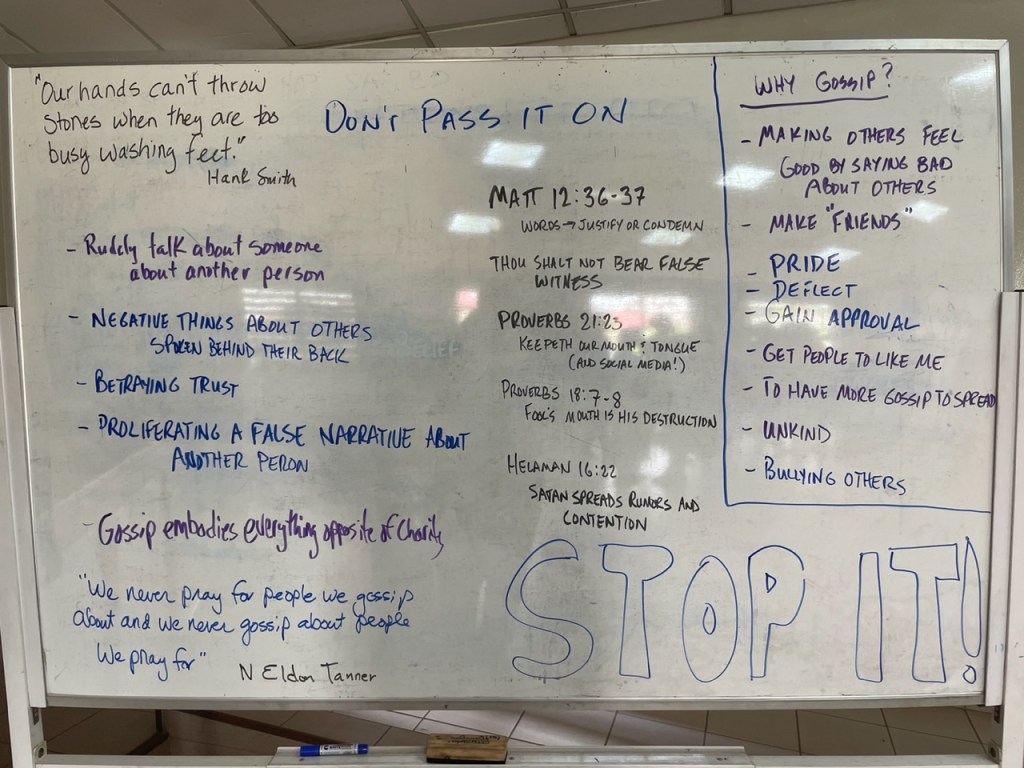 "Our hands can't throw
stones when they are too
busy washing feet."
Hank Smith
DON'T PASS IT ON
- Rudely talk about someone
about another person
- NEGATIVE THINGS ABOUT OTHERS
SPOKEN BEHIND THEIR BACK
- BETRAYING TRUST
- PROLIFERATING A FALSE NARRATIVE ABOUT
ANOTHER PERON
- Gossip embodies everything opposite of Charity
"We never pray for people we gossip
about and we never gossip about people
We pray for"
N Eldon Tanner
MATT 12:36-37
WORDS → JUSTIFY OR CONDEMN
THOU SHALT NOT BEAR FALSE
WITNESS
PROVERBS 21:23
KEEPETH OUR MOUTH & TONGUE
(AND SOCIAL MEDIA!)
PROVERBS 18:7-8
FOOL'S MOUTH IS HIS DESTRUCTION
HELAMAN 16:22
SATAN SPREADS RUMORS AND
CONTENTION
WHY GOSSIP?
- MAKING OTHERS FEEL
GOOD BY SAYING BAD
ABOUT OTHERS
- MAKE "FRIENDS"
- PRIDE
- DEFLECT
- GAIN APPROVAL
- GET PEOPLE TO LIKE ME
- TO HAVE MORE GOSSIP TO SPREAD
- UNKIND
- BULLYING OTHERS
STOP IT!